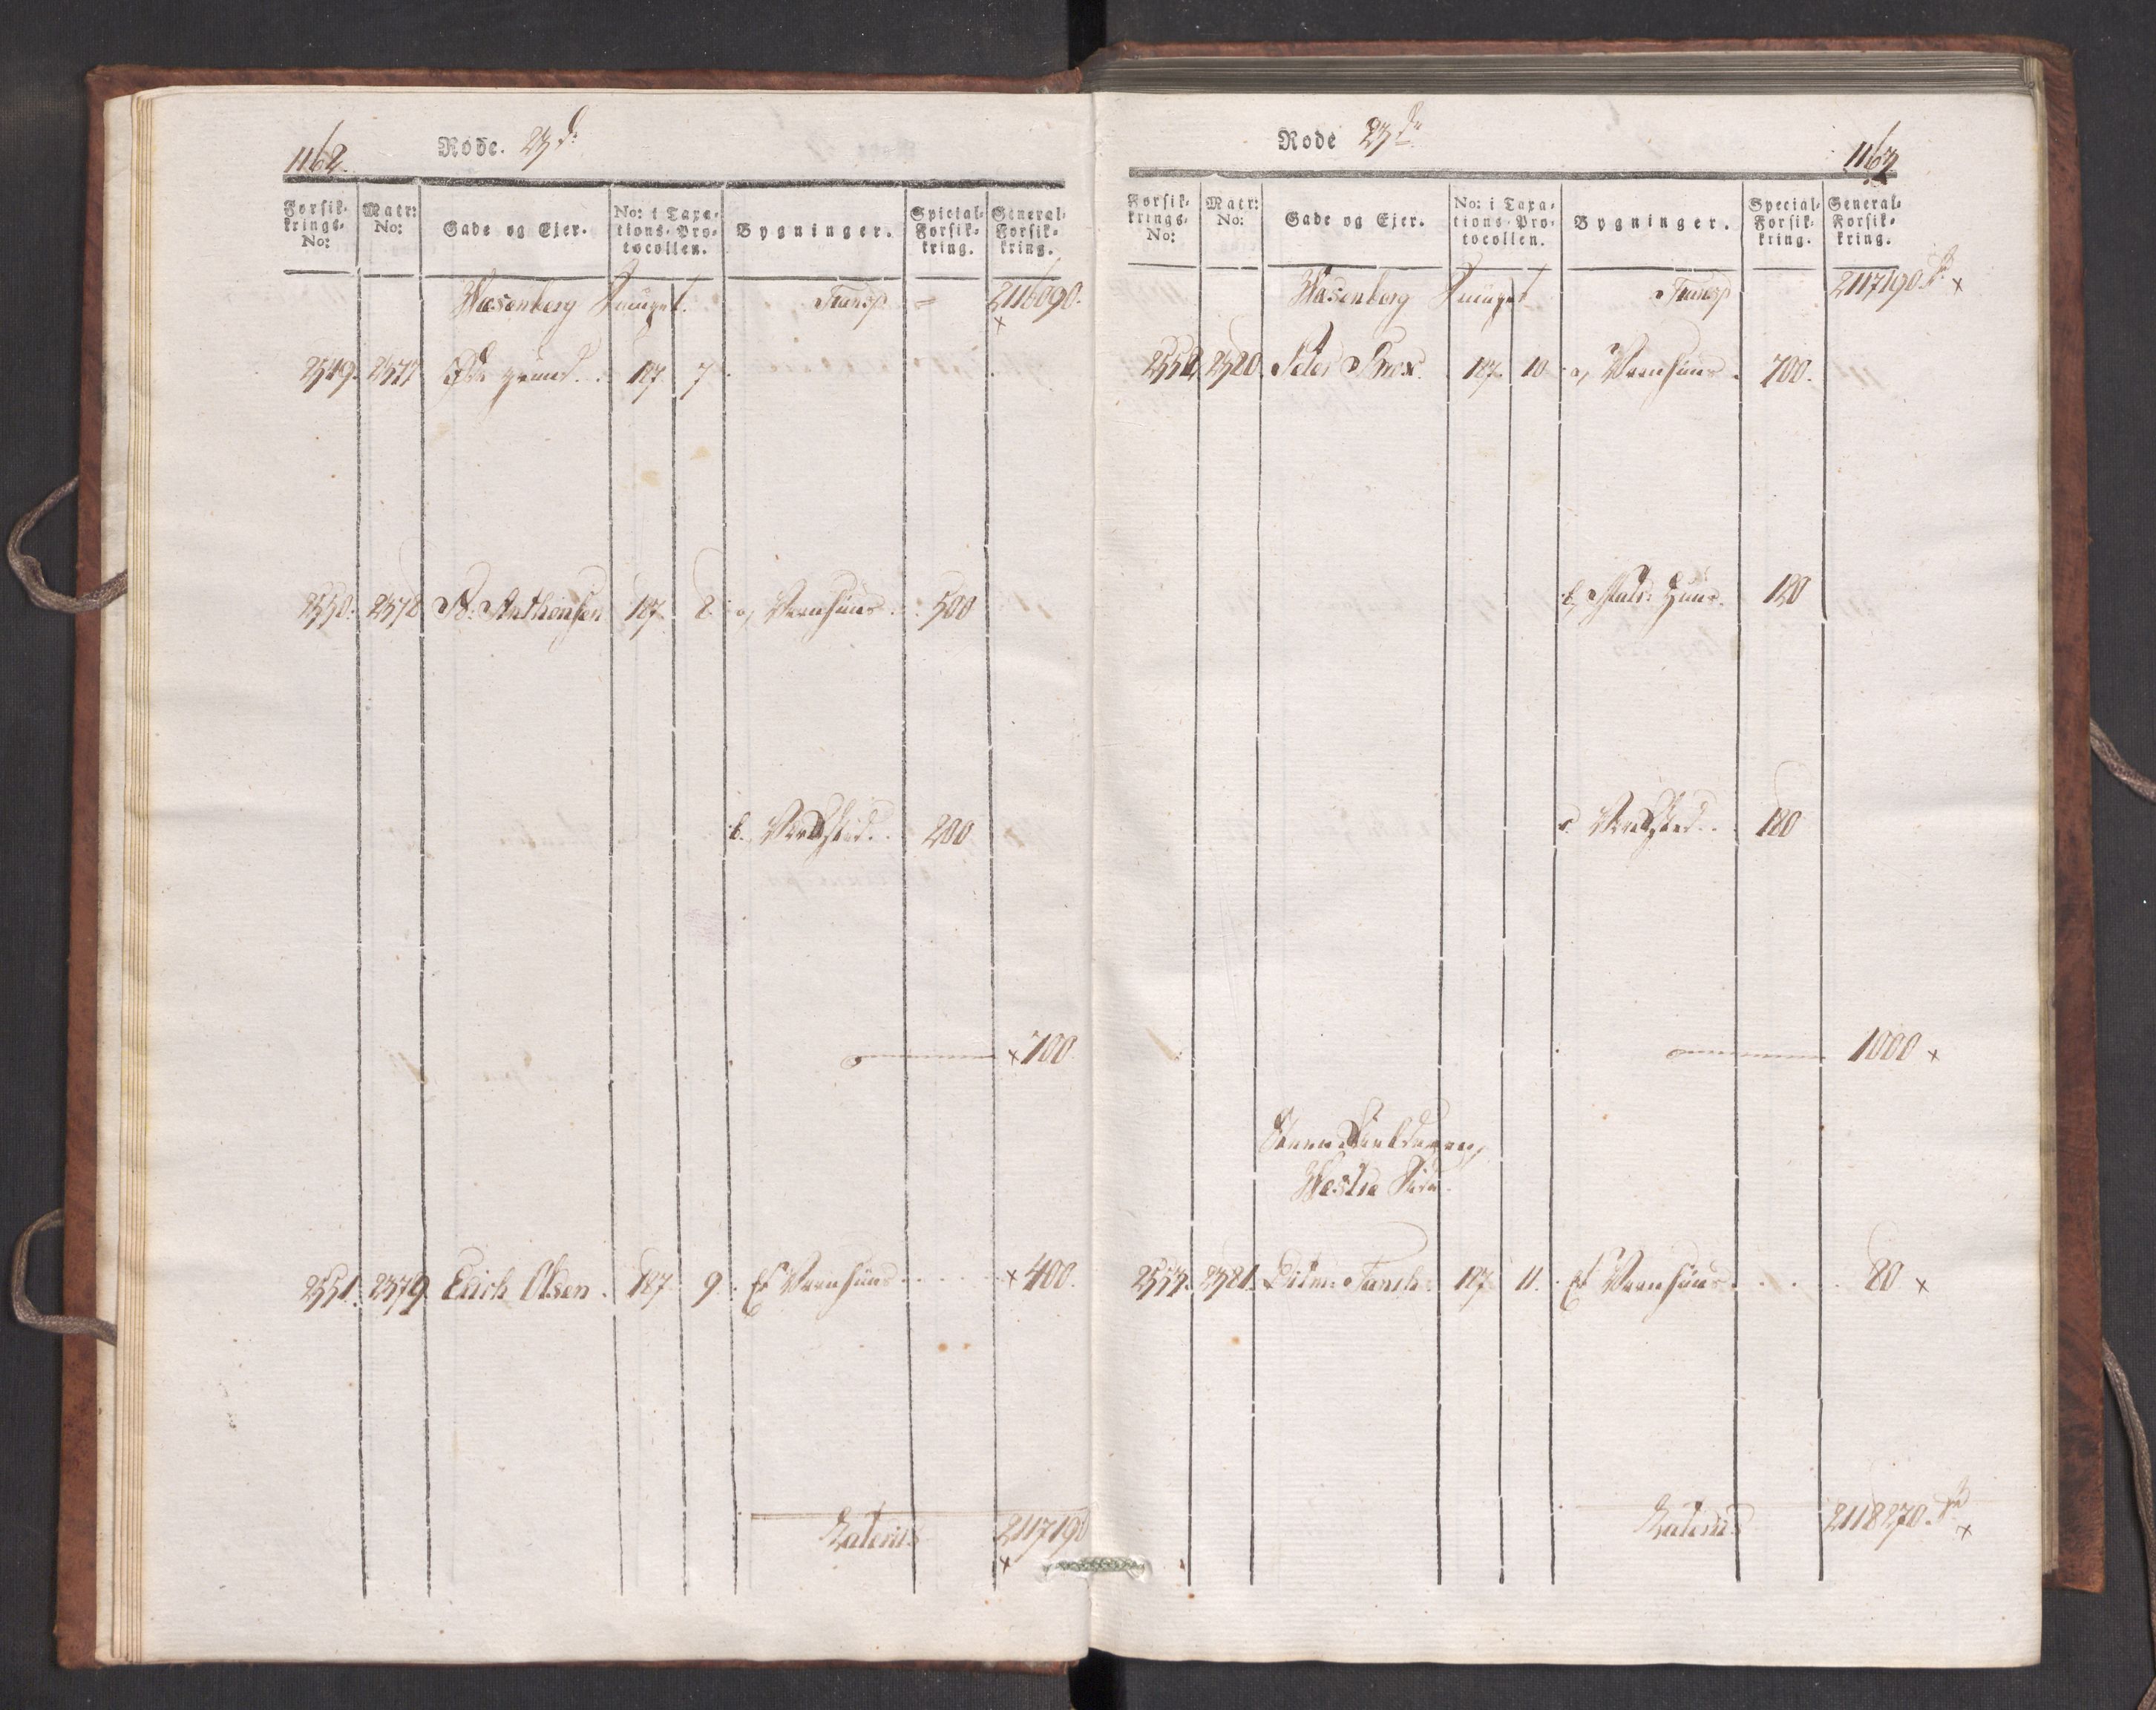 1162.
Rode. 23de
Forsik-
krings-
No:
Matr:
No:
Gade og Ejer.
No: i Taxa-
tions-Pro-
tocollen.
Bygninger.
Special-
Forsik-
kring.
General-
Forsik-
kring.
Wasenberg Smuget. Transp = 2116090.
2549. 2377 Øde grund. 187. 7.
2550. 2378 N. Anthonsen 187. 8. a, Vaanhuus. 500
b., Værksted. 200
700.
2551. 2379 Erich Olsen. 187. 9. Et Vaanhuus 400.
Lateris 2117190
Rode 23de
1163
Forsik-
krings-
No:
Matr:
No:
Gade og Ejer.
No: i Taxa-
tions-Pro-
tocollen.
Bygninger.
Special-
Forsik-
kring.
General-
Forsik-
kring.
Wasenberg Smuget Transp 2117190
2552. 2380. Peter Brox. 187. 10. a, Vaanhuus. 700.
b, Huus. 120
c. Værksted. 180
1000
Westre Side.
2553. 2381. 187. 11. Et Vaanhuus 80
Lateris 2118270.